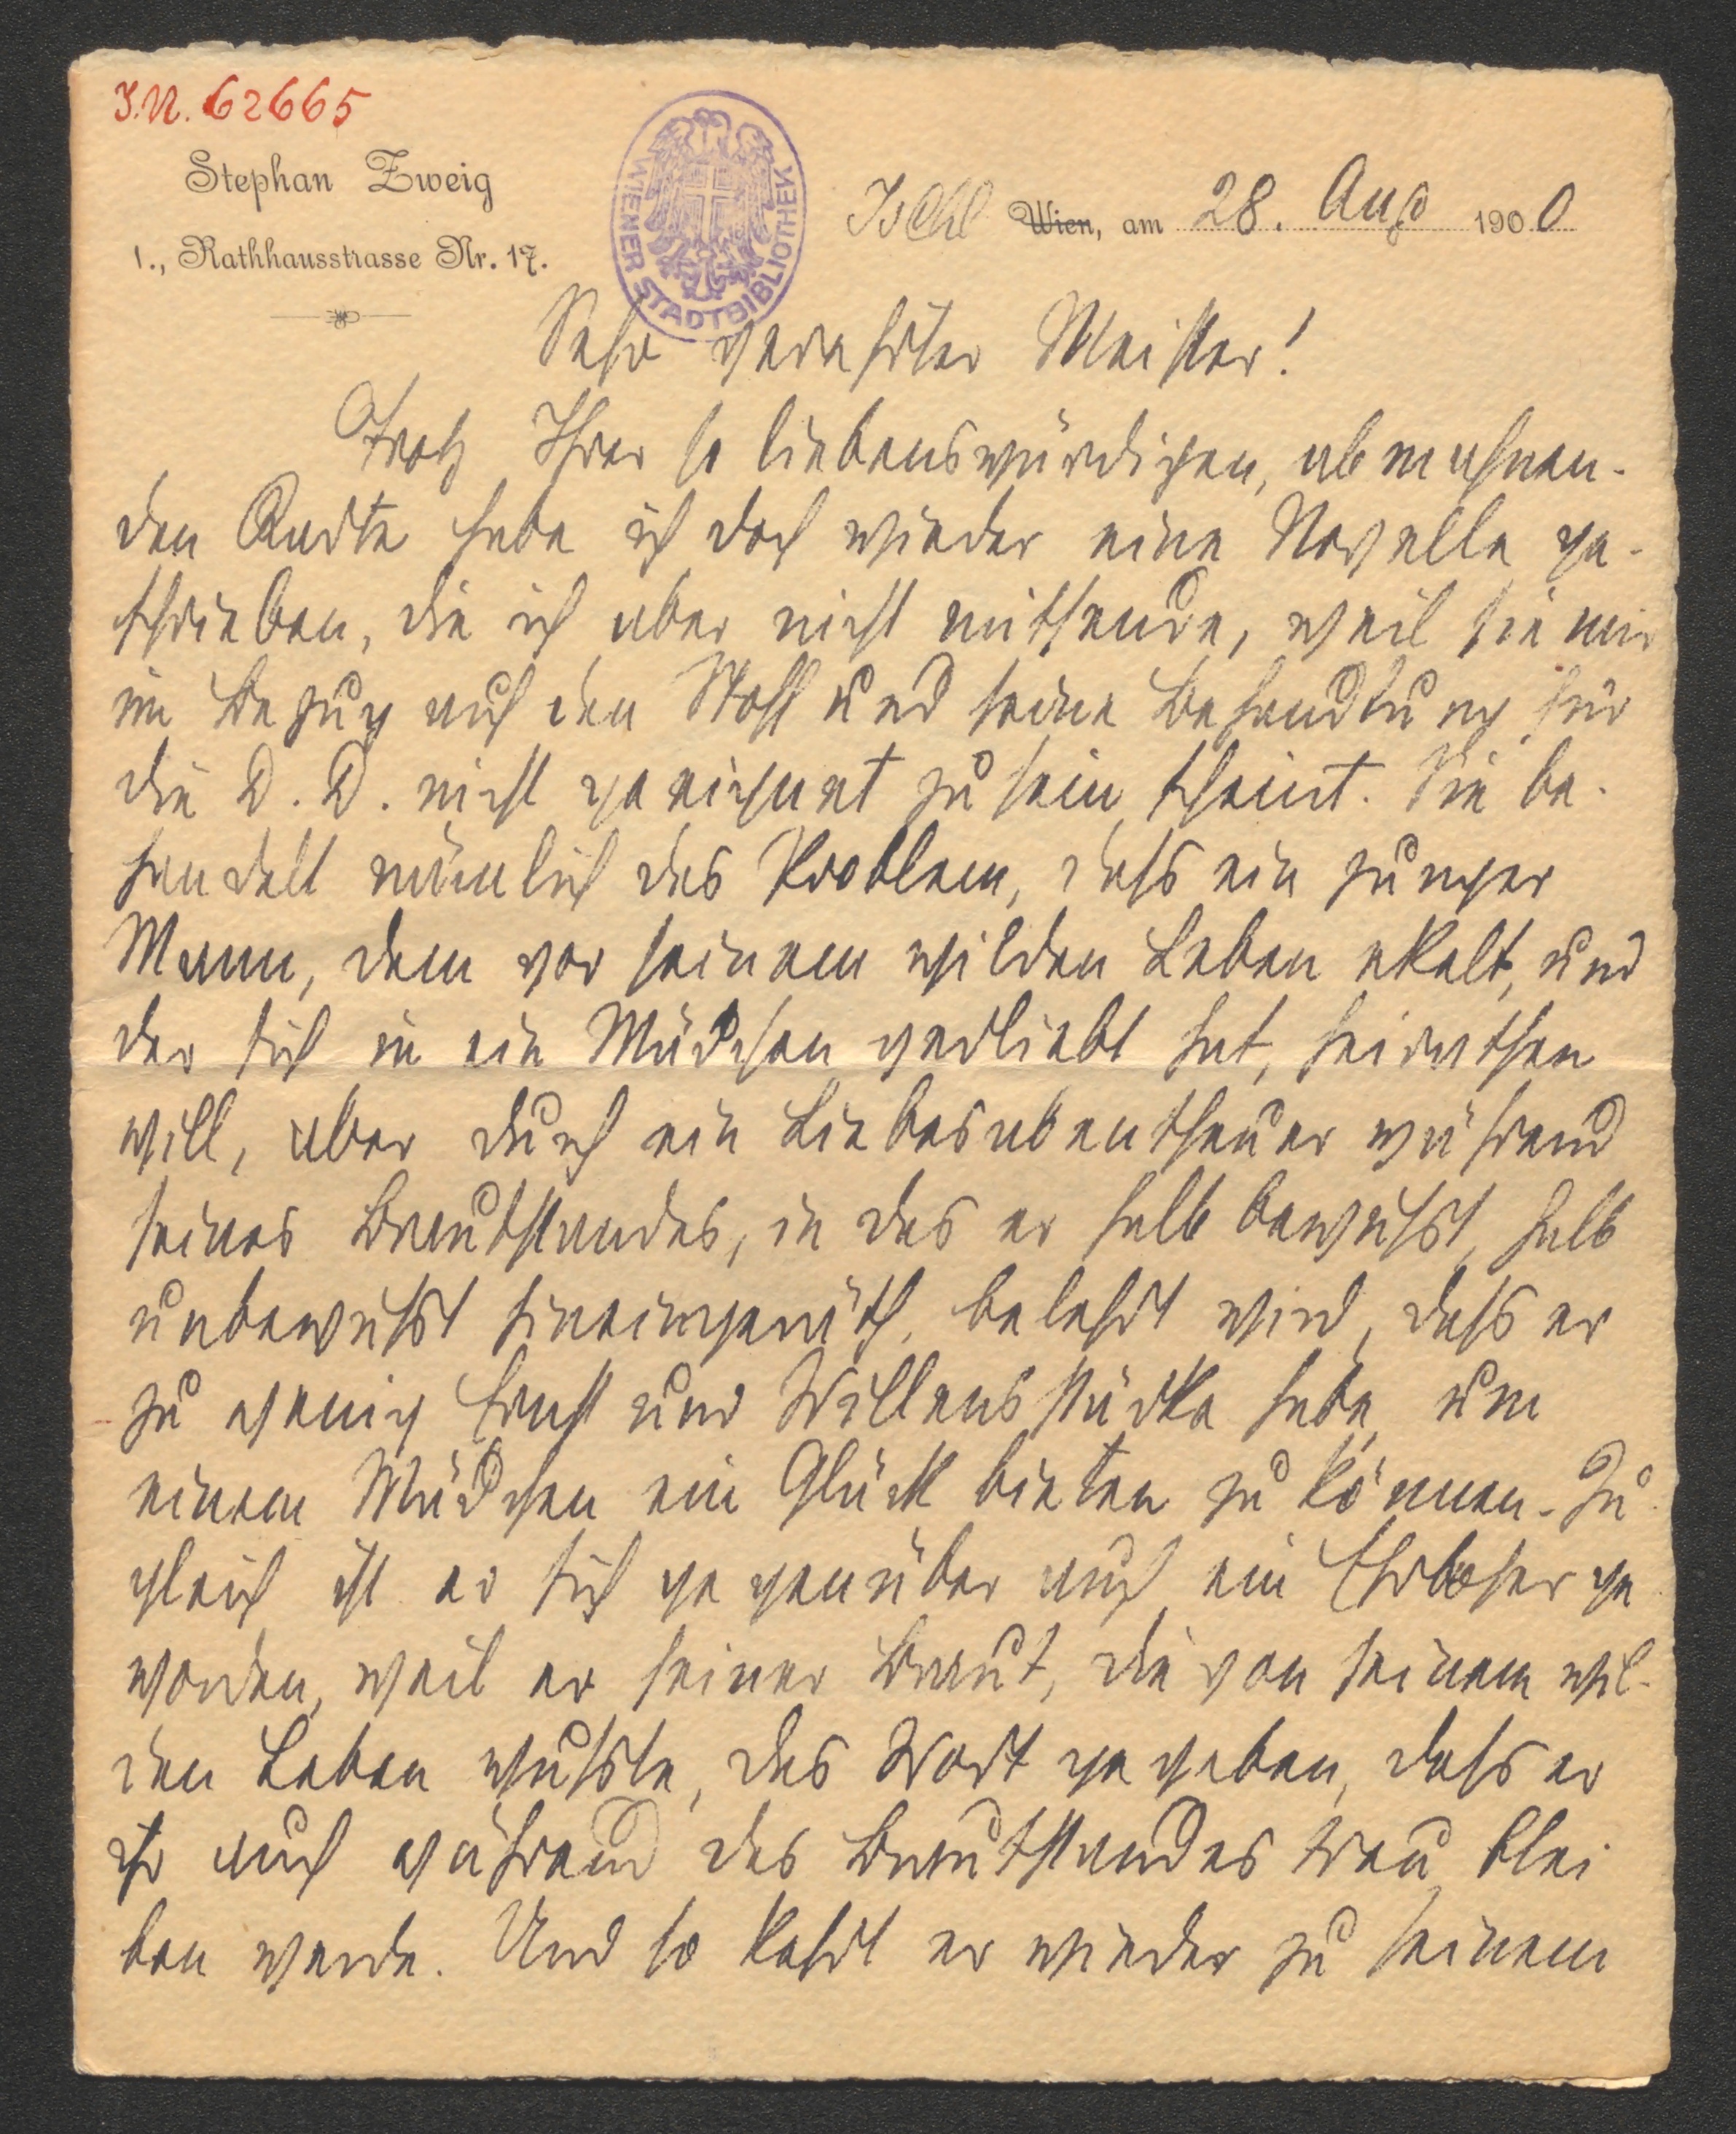 I.N. 62665
Stephan Zweig
I., Rathhausstrasse Nr. 17.
WIENER STADTBIBLIOTHEK
Ischl Wien, am 28. Aug 1900
Sehr verehrter Meister!
Trotz Ihrer so liebenswürdigen, abmahnen-
den Karte habe ich doch wieder eine Novelle ge-
schrieben, die ich aber nicht mitsende, weil sie mir
in Bezug auf den Stoff und seine Behandlung für
die D. D. nicht geeignet zu sein scheint. Sie be-
handelt nämlich das Problem, dass ein junger
Mann, dem vor seinem wilden Leben ekelt, und
der sich in ein Mädchen verliebt hat, heirathen
will, aber durch ein Liebesabentheuer während
seines Brautstandes, in das er halb bewusst, halb
unbewusst hineingeräth, belehrt wird, dass er
zu wenig Ernst und Willensstärke habe, um
einem Mädchen ein Glück bieten zu können. Zu-
gleich ist er sich gegenüber auch ein Ehrloser ge
worden, weil er seiner Braut, die von seinem wil-
den Leben wusste, das Wort gegeben, dass er
ihr auch während des Brautstandes treu blei
ben werde. Und so kehrt er wieder zu seinem